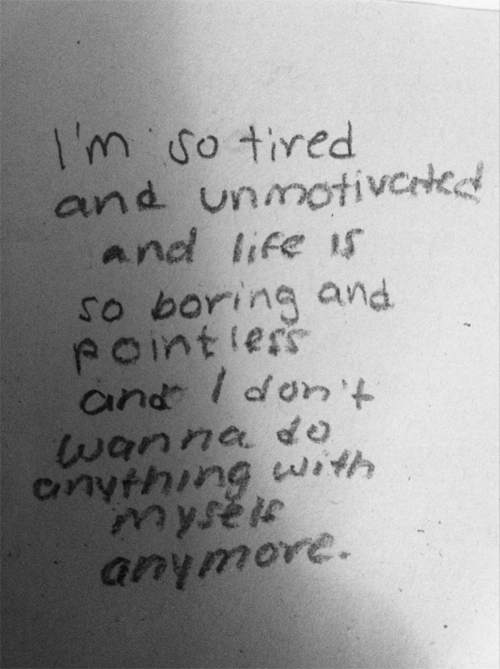 I'm so tired
and unmotivated
and life is
so boring and
pointless
and I don't
wanna do
anything with
myself
anymore.